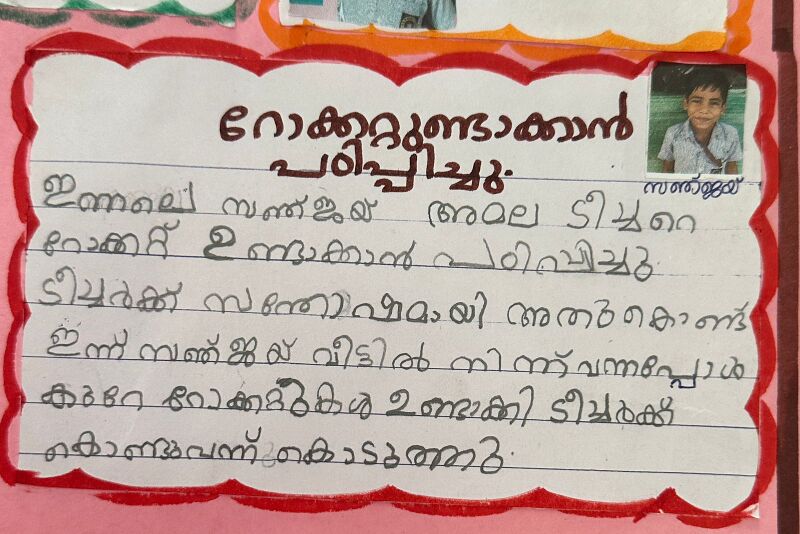 റോക്കറ്റുണ്ടാക്കാൻ
പഠിപ്പിച്ചു.
സഞ്ജയ്
ഇന്നലെ സഞ്ജയ് അമല ടീച്ചറെ
റോക്കറ്റ് ഉണ്ടാക്കാൻ പഠിപ്പിച്ചു
ടീച്ചർക്ക് സന്തോഷമായി അതുകൊണ്ട്
ഇന്ന് സഞ്ജയ് വീട്ടിൽ നിന്ന് വന്നപ്പോൾ
കുറേ റോക്കറ്റുകൾ ഉണ്ടാക്കി ടീച്ചർക്ക്
കൊണ്ടുവന്ന് കൊടുത്തു.